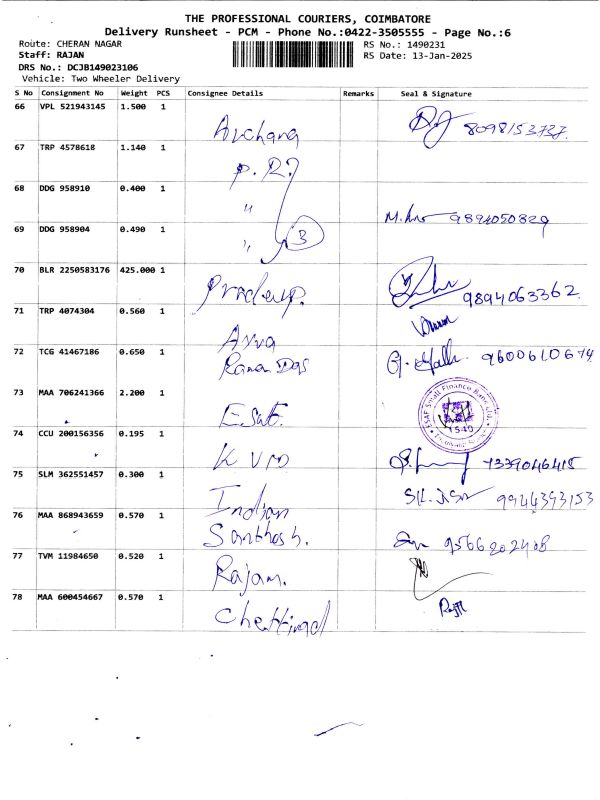 THE PROFESSIONAL COURIERS, COIMBATORE
Delivery Runsheet - PCM - Phone No.:0422-3505555 - Page No.:6
Route: CHERAN NAGAR
RS No.: 1490231
Staff: RAJAN
RS Date: 13-Jan-2025
DRS No.: DCJB149023106
Vehicle: Two Wheeler Delivery
S No Consignment No Weight PCS Consignee Details Remarks Seal & Signature
66 VPL 521943145 1.500 1
Archana 8098153737.
67 TRP 4578618 1.140 1
68 DDG 958910 0.400 1
" 9894050829
69 DDG 958904 0.490 1
" 3
70 BLR 2250583176 425.000 1
Pradeep. 9894063362.
71 TRP 4074304 0.560 1
72 TCG 41467186 0.650 1
Rama Das 9600610674
73 MAA 706241366 2.200 1
ESAF Small Finance Bank Ltd.
1540
74 CCU 200156356 0.195 1
KVM 7339046415
75 SLM 362551457 0.300 1
Indian 9944393153
76 MAA 868943659 0.570 1
Santhosh. 9566202408
77 TVM 11984650 0.520 1
Rajam.
78 MAA 600454667 0.570 1
Chettinad